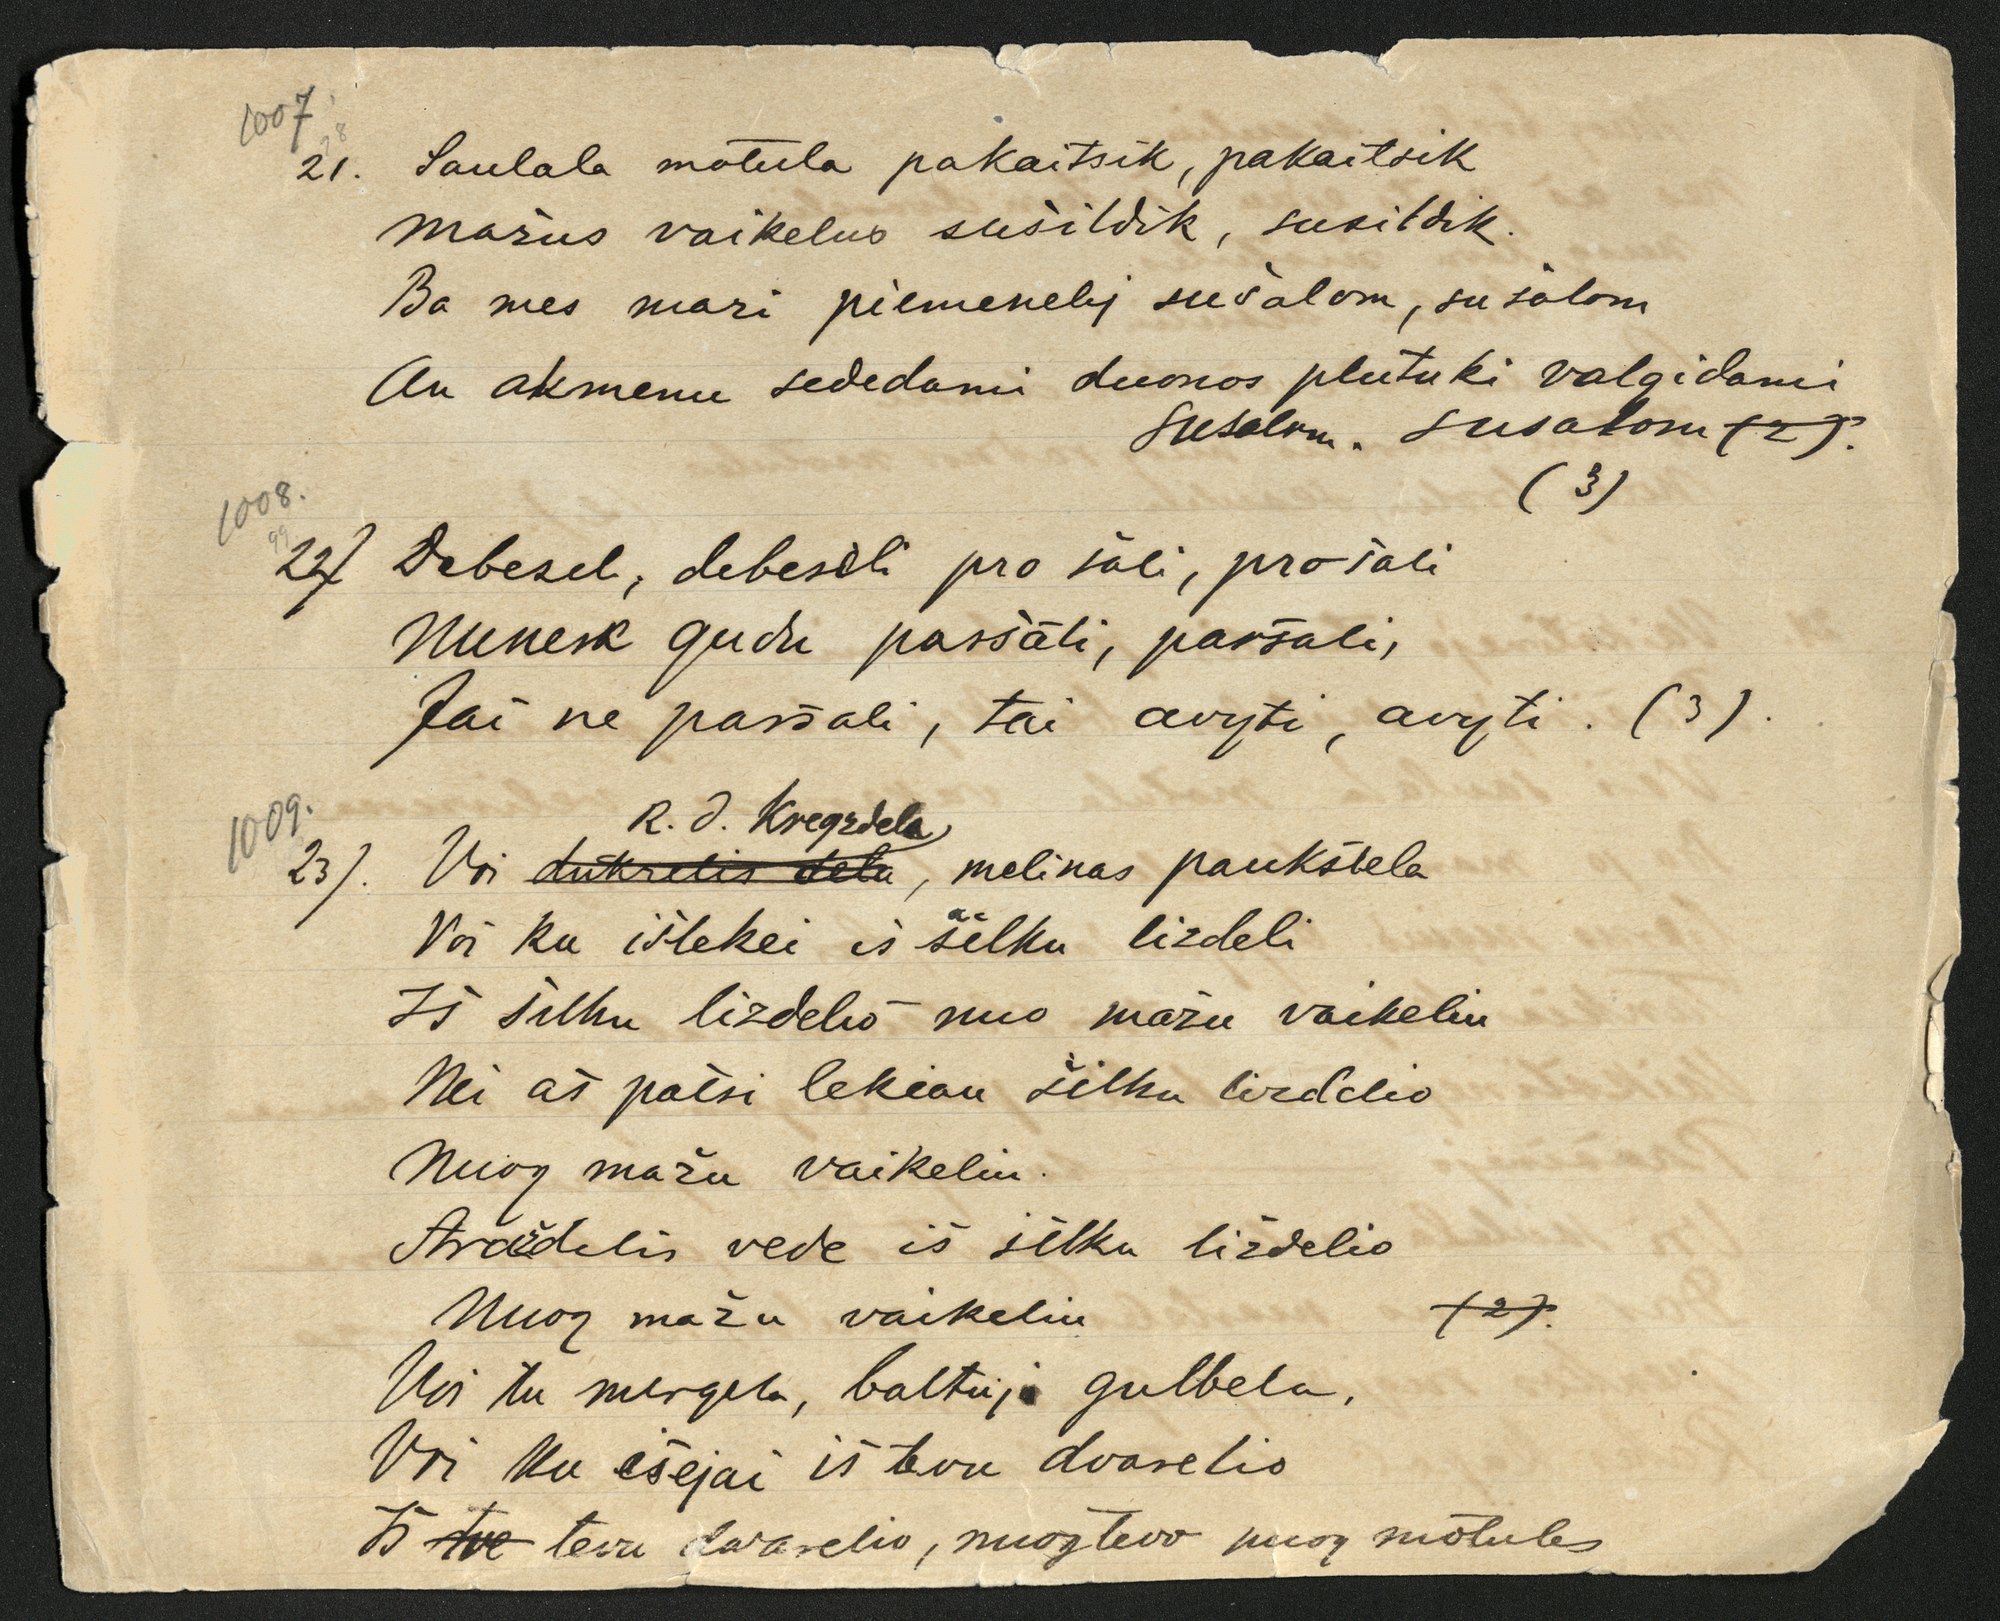 1007
98
21. Saulala motula pakaitsik, pakaitsik
mažus vaikelus sušildik, susildik.
Ba mes mazi piemenelij sušalom, sušalom
An akmenu sededami duonos plutuki valgidami
susalom. susalom (2).
(3)
1008.
99
22) Debesel, debesėli pro šali, prošali
Nunesk gudu paršali, paršali,
Jai ne paršali, tai avyti, avyti. (3).
1009.
R. d. Kregzdela
23). Voi dukrelis dela, melinas paukštela
Voi ku išlekei is šilku lizdeli
Iš šilku lizdelio nuo mažu vaikeliu
Nei aš patsi lekiau šilku lizdelio
Nuog mažu vaikeliu.
Strazdelis vede iš šilku lizdelio
Nuog mažu vaikeliu (2).
Voi tu mergela, baltuja gulbela,
Voi ku išejai iš tevu dvarelio
Iš tve tevu dvarelio, nuog tevo nuog motules